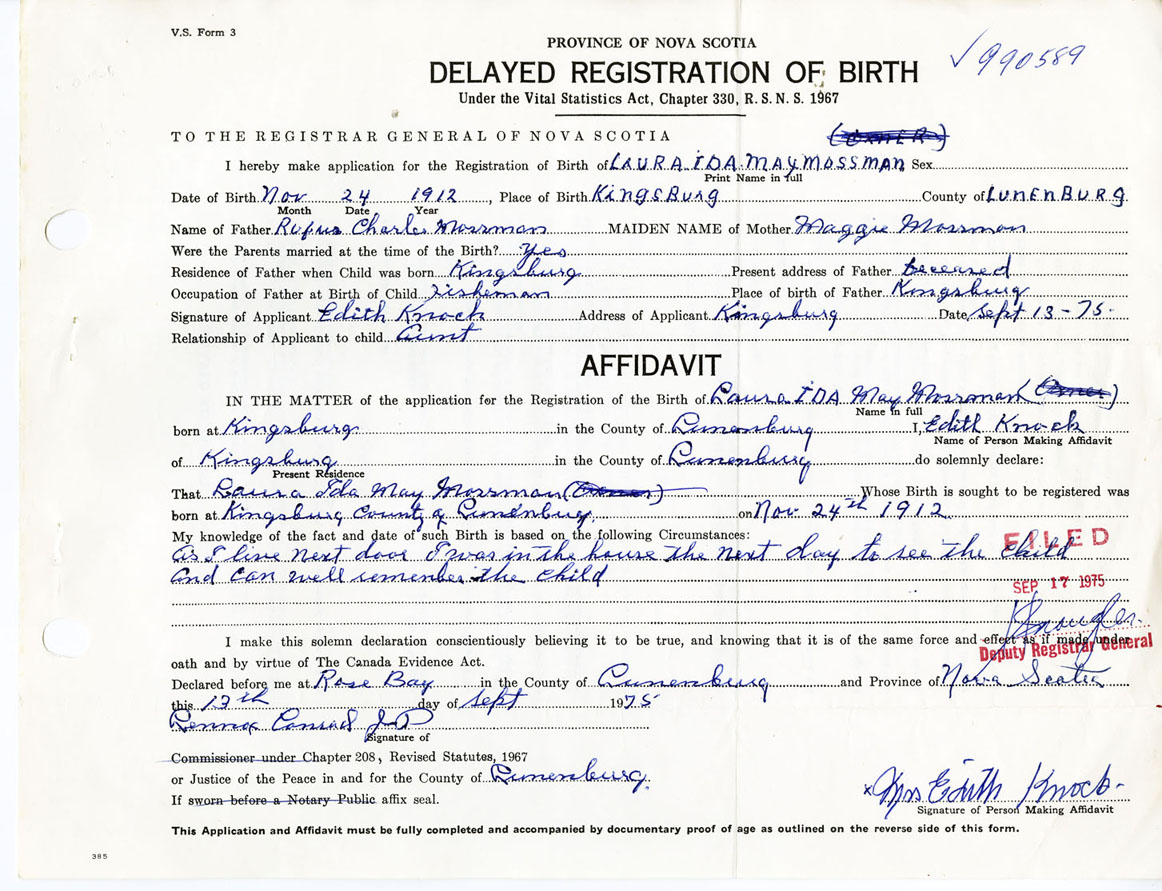 V.S. Form 3
PROVINCE OF NOVA SCOTIA
✓ 990589
DELAYED REGISTRATION OF BIRTH
Under the Vital Statistics Act, Chapter 330, R. S. N. S. 1967
TO THE REGISTRAR GENERAL OF NOVA SCOTIA
I hereby make application for the Registration of Birth of LAURA IDA MAY MOSSMAN Sex
Print Name in full
Date of Birth Nov 24 1912, Place of Birth KINGSBURG County of LUNENBURG
Month Date Year
Name of Father Rufus Charles Mossman MAIDEN NAME of Mother Maggie Mossman
Were the Parents married at the time of the Birth? Yes
Residence of Father when Child was born Kingsburg Present address of Father Deceased
Occupation of Father at Birth of Child Fisheman Place of birth of Father Kingsburg
Signature of Applicant Edith Knock Address of Applicant Kingsburg Date Sept 13-75.
Relationship of Applicant to child Aunt
AFFIDAVIT
IN THE MATTER of the application for the Registration of the Birth of Laura IDA May Mossman
Name in full
born at Kingsburg in the County of Lunenburg I, Edith Knock
Name of Person Making Affidavit
of Kingsburg in the County of Lunenburg do solemnly declare:
Present Residence
That Laura Ida May Mossman Whose Birth is sought to be registered was
born at Kingsburg County of Lunenburg. on Nov 24th 1912
My knowledge of the fact and date of such Birth is based on the following Circumstances:
As I live next door I was in the house the next day to see the child
And can well remember the child
FILED
SEP 17 1975
I make this solemn declaration conscientiously believing it to be true, and knowing that it is of the same force and effect as if made under
Deputy Registrar General
oath and by virtue of The Canada Evidence Act.
Declared before me at Rose Bay in the County of Lunenburg and Province of Nova Scotia
this 13th day of Sept 1975
Lennox Conrad J.P
Signature of
Commissioner under Chapter 208, Revised Statutes, 1967
or Justice of the Peace in and for the County of Lunenburg.
If sworn before a Notary Public affix seal.
x Mrs Edith Knock
Signature of Person Making Affidavit
This Application and Affidavit must be fully completed and accompanied by documentary proof of age as outlined on the reverse side of this form.
385